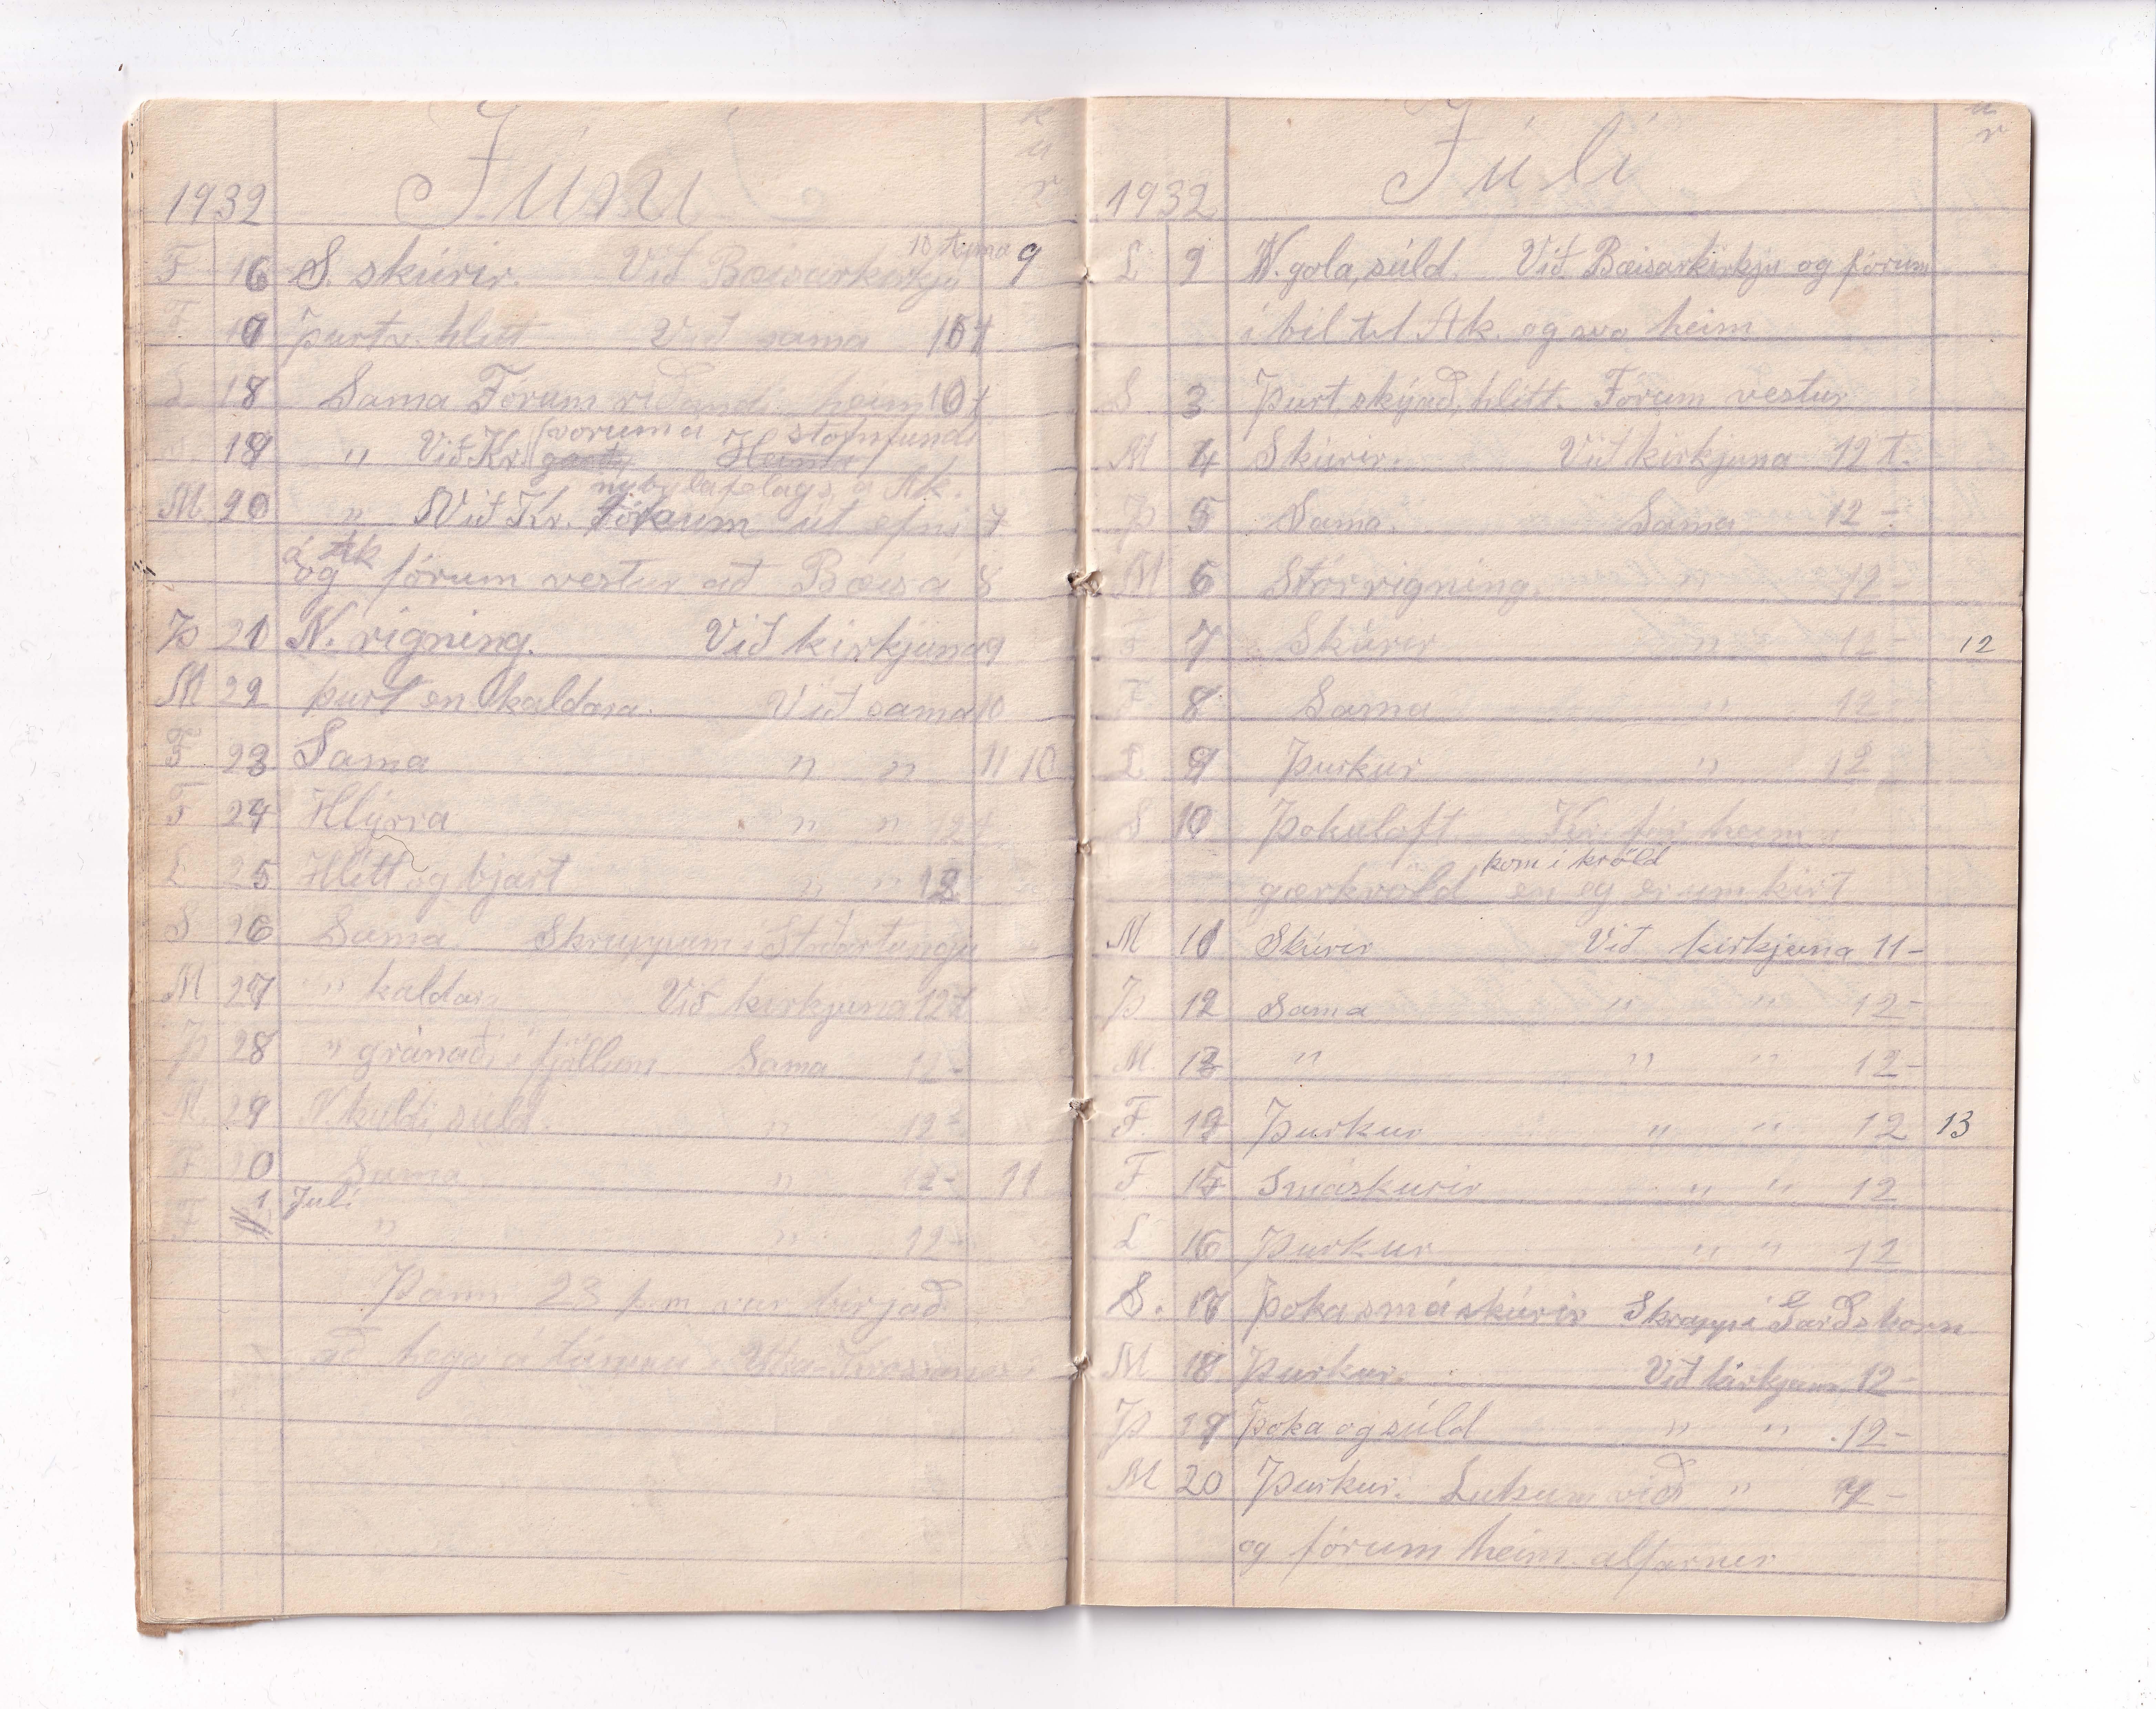 k
u
r
1932 Júní
F 16 S. skúrir. Við Bæisarkirkju 10 tíma 9
F 17 þurt v. hlítt Við sama 10 t
L 18 Sama Fórum ríðandi heim 10 t
vorum á stofnfundi
19 " Við Kr.
nýbýlafélags á Ak.
M 20 " Við Kr. tókum út efni 7
á Ak
og fórum vestur að Bæisá 8
Þ 21 N. rigning. Við kirkjuna 9
M 22 þurt en kaldara. Við sama 10
F 23 Sama " " 11 10
F 24 Hlýrra " " 12 t
L 25 Hlítt og bjart " " 12
S 26 Sama. Skruppum í Staðartungu
M 27 " kaldara Við kirkjuna 12 t
Þ 28 " gránaði í fjöllum Sama 12-
M. 29 N. kuldi, súld. " 12-
F 30 Sama " 12- 11
F 1 Júlí " " 12-
Þann 23 þ.m. var birjað
að heya á túninu í Ytra-Krossanesi
u
r
1932 Júlí
L 2 N. gola, súld. Við Bæisarkirkju og fórum
í bíl til Ak. og svo heim
S 3 Þurt skýjað, hlítt. Fórum vestur
M 4 Skúrir. Við kirkjuna 12 t.
Þ 5 Sama. Sama 12-
M 6 Stórrigning. " 12-
F 7 Skúrir " 12- 12
F 8 Sama " 12-
L 9 Þurkur " 12
S 10 Þokuloft. Kr. fór heim í
kom í kvöld
gærkvöld en eg er um kirt
M 11 Skúrir Við kirkjuna 11-
Þ 12 Sama " " 12-
M. 13 " " " 12-
F. 14 Þurkur " " 12 13
F. 15 Smáskurir " " 12
L 16 Þurkur " " 12
S. 17 Þoka smáskúrir Skrapp í Garðshorn
M 18 Þurkur. Við kirkjuna 12-
Þ 19 Þoka og súld " " 12-
M 20 Þurkur. Lukum við " 7-
og fórum heim alfarnir